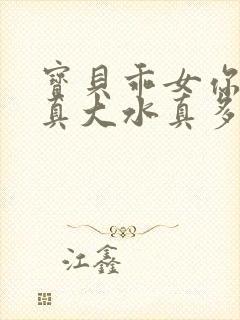 寶貝乖女你
真大水真多
江鑫